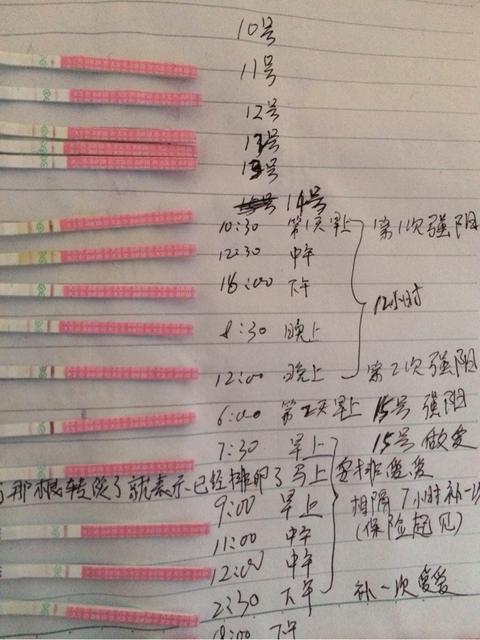 10号
11号
12号
13号
13号
14号
10:30 第1天早上 第1次强阳
12:30 中午
16:00 下午
12小时
8:30 晚上
12:00 晚上 第2次强阳
6:00 第2天早上 15号 强阳
7:30 早上 15号做爱
那根转淡了就表示已经排卵了马上安排爱爱
9:00 早上 相隔7小时补一次
(保险起见)
11:00 中午
12:00 中午
2:30 下午 补一次爱爱
下午